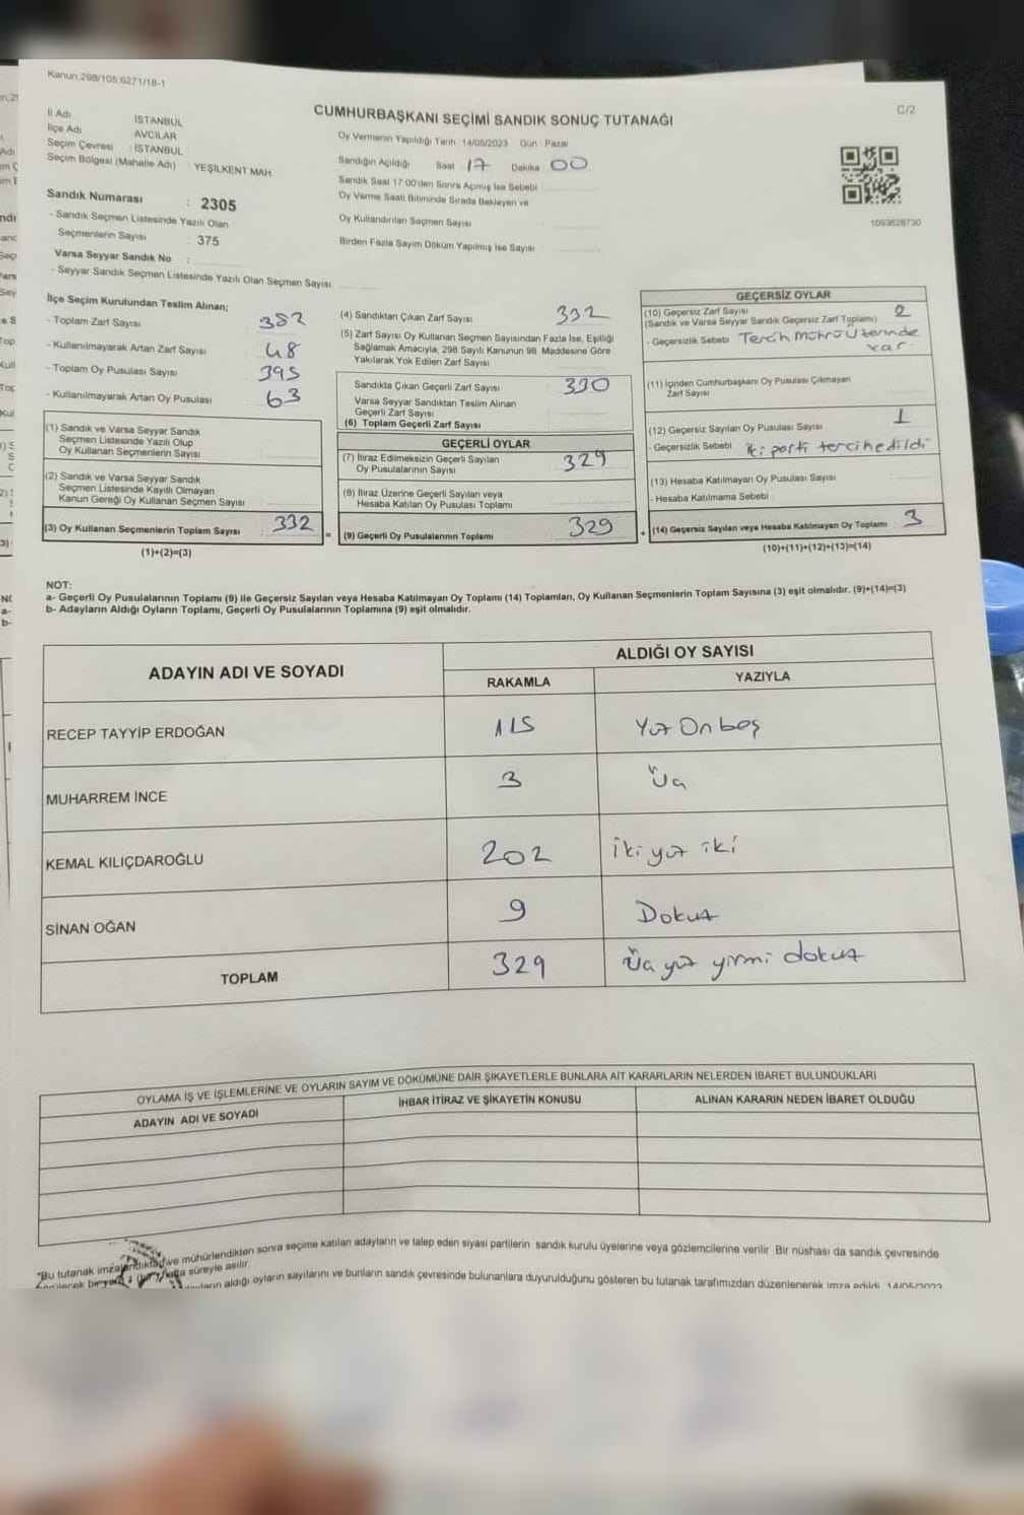 Kanun:298/105 6271/18-1
C/2
CUMHURBAŞKANI SEÇİMİ SANDIK SONUÇ TUTANAĞI
İl Adı İSTANBUL
İlçe Adı AVCILAR
Seçim Çevresi : İSTANBUL
Seçim Bölgesi (Mahalle Adı) : YEŞİLKENT MAH.
Sandık Numarası : 2305
- Sandık Seçmen Listesinde Yazılı Olan
Seçmenlerin Sayısı : 375
Varsa Seyyar Sandık No :
- Seyyar Sandık Seçmen Listesinde Yazılı Olan Seçmen Sayısı
Oy Vermenin Yapıldığı Tarih :14/05/2023 Gün : Pazar
Sandığın Açıldığı Saat 17 Dakika 00
Sandık Saat 17:00'den Sonra Açılmış İse Sebebi
Oy Verme Saati Bitiminde Sırada Bekleyen ve
Oy Kullandırılan Seçmen Sayısı
Birden Fazla Sayım Döküm Yapılmış İse Sayısı
1093628730
İlçe Seçim Kurulundan Teslim Alınan;
- Toplam Zarf Sayısı 382
- Kullanılmayarak Artan Zarf Sayısı 48
- Toplam Oy Pusulası Sayısı 395
- Kullanılmayarak Artan Oy Pusulası 63
(1) Sandık ve Varsa Seyyar Sandık
Seçmen Listesinde Yazılı Olup
Oy Kullanan Seçmenlerin Sayısı
(2) Sandık ve Varsa Seyyar Sandık
Seçmen Listesinde Kayıtlı Olmayan
Kanun Gereği Oy Kullanan Seçmen Sayısı
(3) Oy Kullanan Seçmenlerin Toplam Sayısı 332
(1)+(2)=(3)
(4) Sandıktan Çıkan Zarf Sayısı 332
(5) Zarf Sayısı Oy Kullanan Seçmen Sayısından Fazla İse, Eşitliği
Sağlamak Amacıyla, 298 Sayılı Kanunun 98. Maddesine Göre
Yakılarak Yok Edilen Zarf Sayısı
Sandıkta Çıkan Geçerli Zarf Sayısı 330
Varsa Seyyar Sandıktan Teslim Alınan
Geçerli Zarf Sayısı
(6) Toplam Geçerli Zarf Sayısı
GEÇERLİ OYLAR
(7) İtiraz Edilmeksizin Geçerli Sayılan
Oy Pusulalarının Sayısı 329
(8) İtiraz Üzerine Geçerli Sayılan veya
Hesaba Katılan Oy Pusulası Toplamı
(9) Geçerli Oy Pusulalarının Toplamı 329
GEÇERSİZ OYLAR
(10) Geçersiz Zarf Sayısı 2
(Sandık ve Varsa Seyyar Sandık Geçersiz Zarf Toplamı)
- Geçersizlik Sebebi Tercih Mührü Üzerinde
var
(11) İçinden Cumhurbaşkanı Oy Pusulası Çıkmayan
Zarf Sayısı
(12) Geçersiz Sayılan Oy Pusulası Sayısı 1
- Geçersizlik Sebebi iki parti tercih edildi
(13) Hesaba Katılmayan Oy Pusulası Sayısı
- Hesaba Katılmama Sebebi
(14) Geçersiz Sayılan veya Hesaba Katılmayan Oy Toplamı 3
(10)+(11)+(12)+(13)=(14)
NOT:
a- Geçerli Oy Pusulalarının Toplamı (9) ile Geçersiz Sayılan veya Hesaba Katılmayan Oy Toplamı (14) Toplamları, Oy Kullanan Seçmenlerin Toplam Sayısına (3) eşit olmalıdır. (9)+(14)=(3)
b- Adayların Aldığı Oyların Toplamı, Geçerli Oy Pusulalarının Toplamına (9) eşit olmalıdır.
ADAYIN ADI VE SOYADI ALDIĞI OY SAYISI
RAKAMLA YAZIYLA
RECEP TAYYİP ERDOĞAN 115 Yüz On beş
MUHARREM İNCE 3 Üç
KEMAL KILIÇDAROĞLU 202 İki yüz iki
SİNAN OĞAN 9 Dokuz
TOPLAM 329 Üç yüz yirmi dokuz
OYLAMA İŞ VE İŞLEMLERİNE VE OYLARIN SAYIM VE DÖKÜMÜNE DAİR ŞİKAYETLERLE BUNLARA AİT KARARLARIN NELERDEN İBARET BULUNDUKLARI
ADAYIN ADI VE SOYADI İHBAR İTİRAZ VE ŞİKAYETİN KONUSU ALINAN KARARIN NEDEN İBARET OLDUĞU
*Bu tutanak ve mühürlendikten sonra seçime katılan adayların ve talep eden siyasi partilerin sandık kurulu üyelerine veya gözlemcilerine verilir. Bir nüshası da sandık çevresinde
süreyle asılır.
aldığı oyların sayılarını ve bunların sandık çevresinde bulunanlara duyurulduğunu gösteren bu tutanak tarafımızdan düzenlenerek imza edildi. 14/05/2023